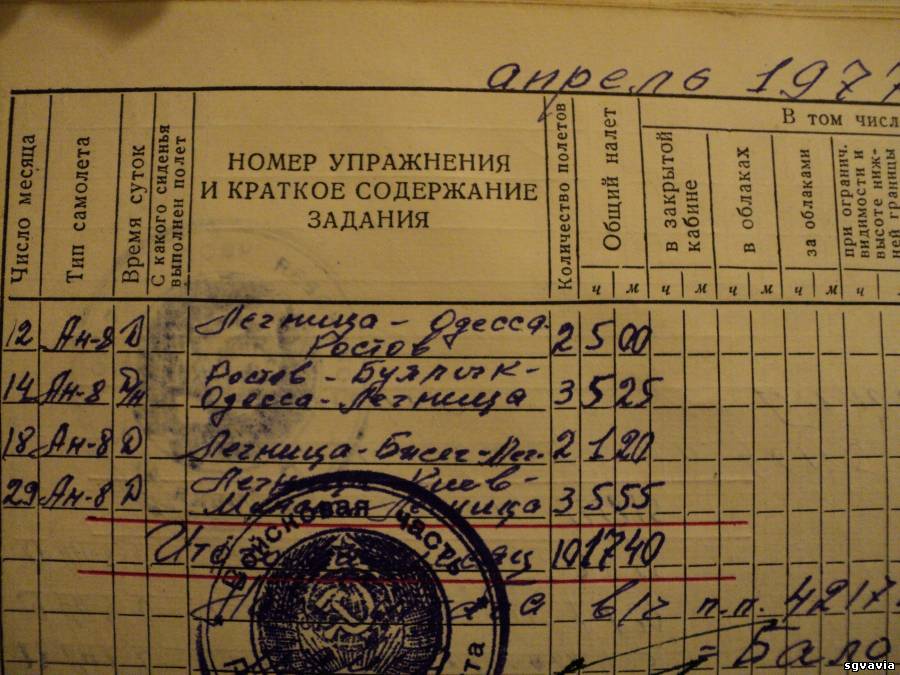 апрель 1977
Число месяца
Тип самолета
Время суток
С какого сиденья выполнен полет
НОМЕР УПРАЖНЕНИЯ
И КРАТКОЕ СОДЕРЖАНИЕ
ЗАДАНИЯ
Количество полетов
Общий налет
В том числ
в закрытой кабине
в облаках
за облаками
при огранич. видимости и высоте ниж- ней границы
ч м ч м ч м ч м ч
12 Ан-8 Д Легница - Одесса- 2 5 00
Ростов
14 Ан-8 Д/Н Ростов - - 3 5 25
Одесса - Легница
18 Ан-8 Д Легница - - Лег. 2 1 20
29 Ан-8 Д Легница Киев- 3 5 55
Легница
Итого 10 17 40
Войсковая часть
в/ч п.п. 4217
= Бало
sgvavia